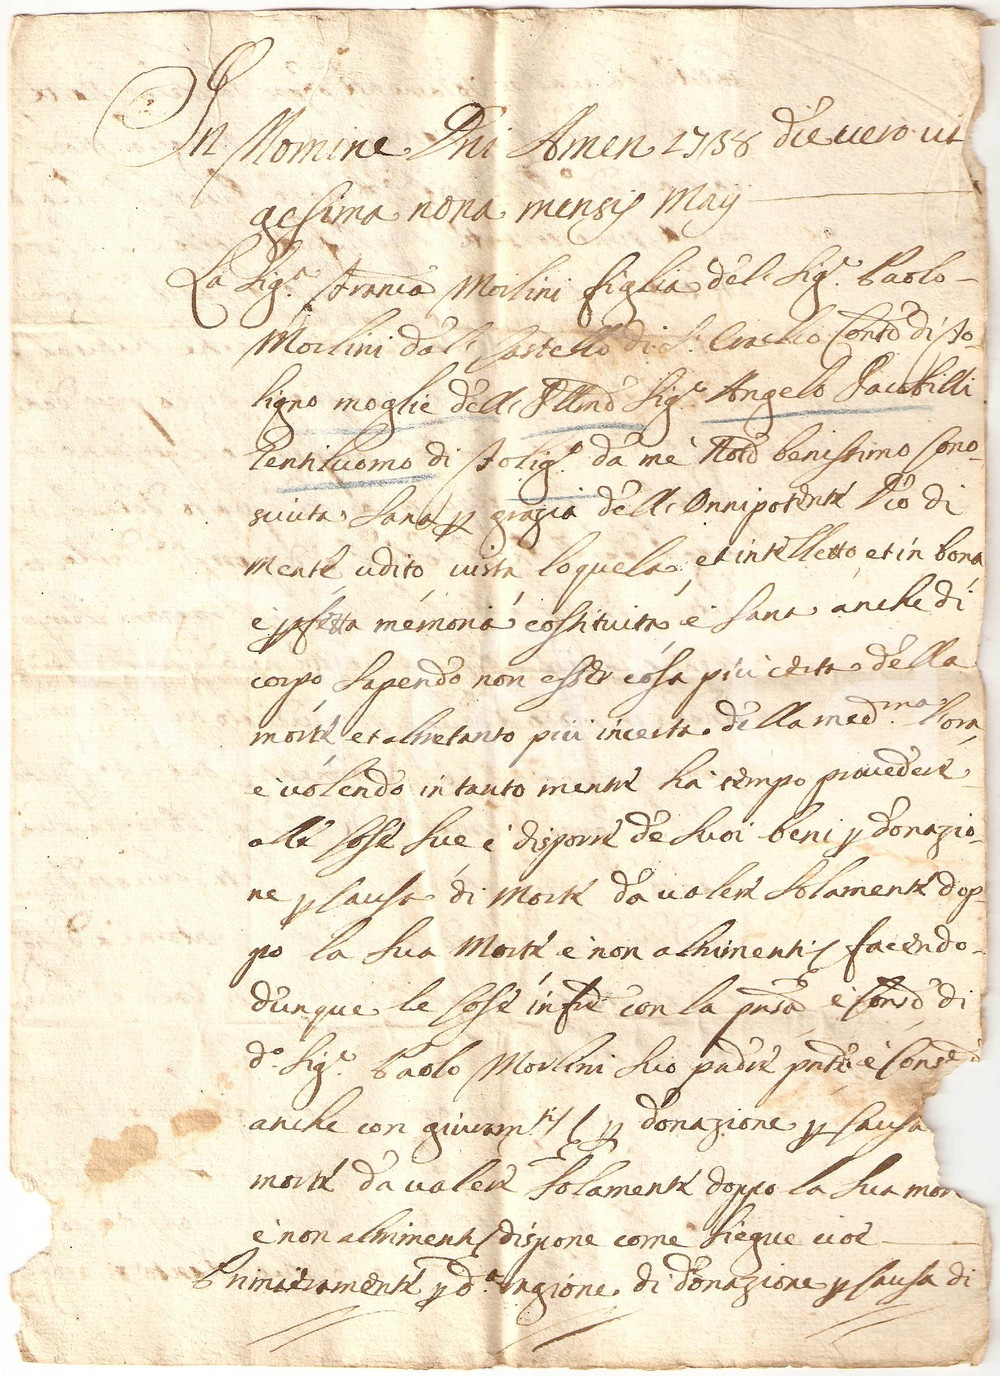 In Nomine Dni Amen 1738 die vero vi
gesima nona mensis Maij
La Sig.ra Franca Morlini figlia del Sig.r Paolo
Morlini dal Castello di S. Eraclio Contò di Fo-
ligno moglie dell Illmo Sig.r Angelo Jacobilli
Gentiluomo di Folig.o da me Notò benissimo cono-
sciuta sana p grazia dell Onnipotente Dio di
mente udito vista loquela, et intelletto, et in bona
e pfetta memoria costituita e sana anche di
corpo sapendo non esser cosa più certa della
morte et altretanto più incerta della med.ma hora,
e volendo in tanto mentre ha tempo provedere
alle cose sue e disporre de suoi beni p donazio-
ne p causa di morte da valere solamente dop-
po la sua morte e non altrimenti facendo
dunque le cose infrè con la pnsa e consò di
d.o Sig.r Paolo Morlini suo padre pntè e
anche con giuram.to p donazione p causa
morte da valere solamente doppo la sua mor
e non altrimenti dispone come siegue cioè
Primieramente p d.a ragione di donazione p causa di